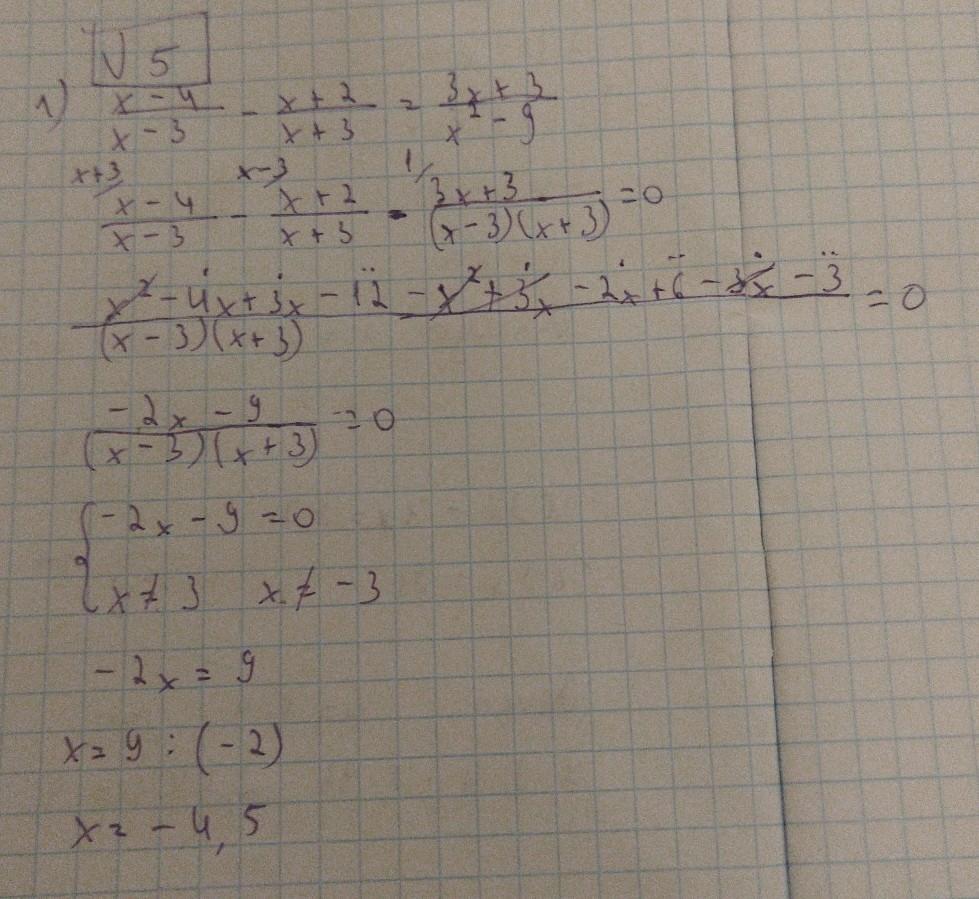 √ 5
1) (x - 4)/(x - 3) - (x + 2)/(x + 3) = (3x + 3)/(x² - 9)
x+3/ x-3/ 1/
(x - 4)/(x - 3) - (x + 2)/(x + 3) - (3x + 3)/((x - 3)(x + 3)) = 0
(x² - 4x + 3x - 12 - x² + 3x - 2x + 6 - 3x - 3)/((x - 3)(x + 3)) = 0
(-2x - 9)/((x - 3)(x + 3)) = 0
{ -2x - 9 = 0
x ≠ 3 x ≠ -3
-2x = 9
x = 9 : (-2)
x = -4,5